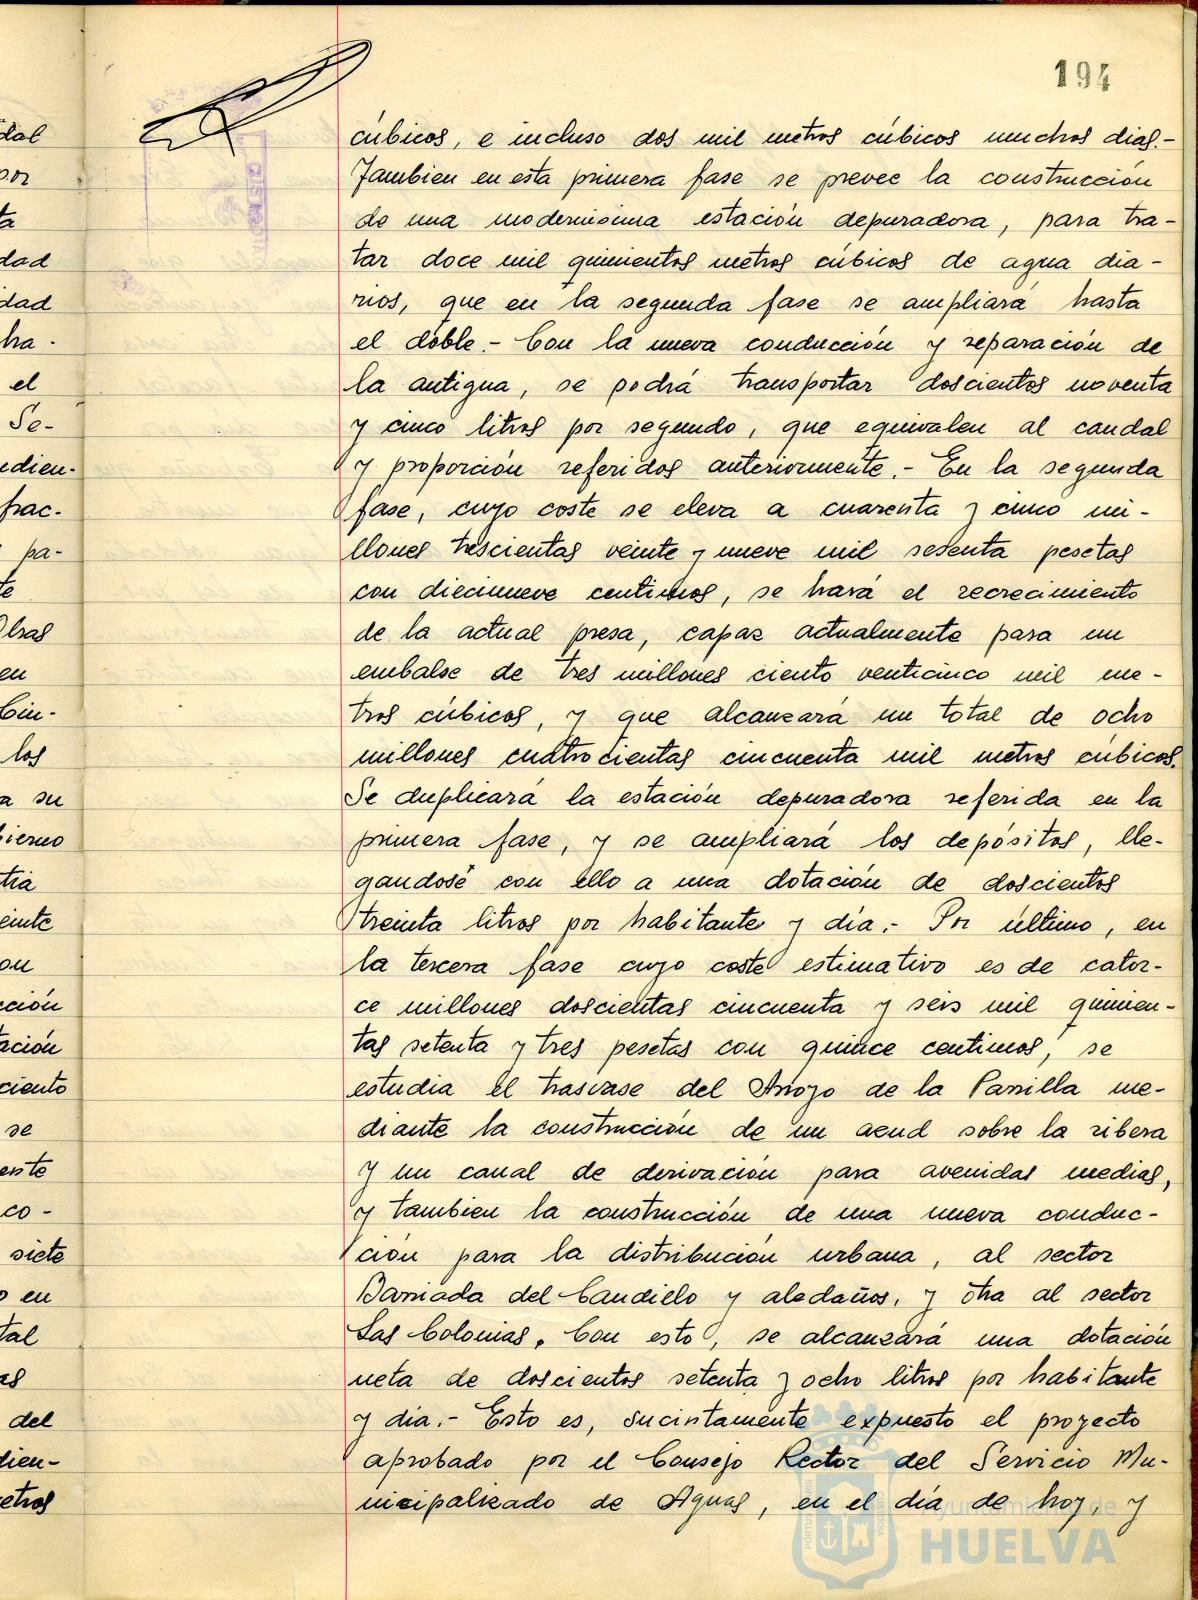 194
cúbicos, e incluso dos mil metros cúbicos muchos dias.-
Tambien en esta primera fase se prevee la construcción
de una modernísima estación depuradora, para tra-
tar doce mil quinientos metros cúbicos de agua dia-
rios, que en la segunda fase se ampliará hasta
el doble.- Con la nueva conducción y reparación de
la antigua, se podrá transportar doscientos noventa
y cinco litros por segundo, que equivalen al caudal
y proporción referidos anteriormente.- En la segunda
fase, cuyo coste se eleva a cuarenta y cinco mi-
llones trescientas veinte y nueve mil sesenta pesetas
con diecinueve centimos, se hará el recrecimiento
de la actual presa, capaz actualmente para un
embalse de tres millones ciento venticinco mil me-
tros cúbicos, y que alcanzará un total de ocho
millones cuatrocientas cincuenta mil metros cúbicos.
Se duplicará la estación depuradora referida en la
primera fase, y se ampliará los depósitos, lle-
gandosé con ello a una dotación de doscientos
treinta litros por habitante y día.- Por último, en
la tercera fase cuyo coste estimativo es de cator-
ce millones doscientas cincuenta y seis mil quinien-
tas setenta y tres pesetas con quince centimos, se
estudia el trasvase del Arroyo de la Parrilla me-
diante la construcción de un azud sobre la ribera
y un canal de derivación para avenidas medias,
y tambien la construcción de una nueva conduc-
ción para la distribución urbana, al sector
Barriada del Caudillo y aledaños, y otra al sector
Las Colonias. Con esto, se alcanzará una dotación
neta de doscientos setenta y ocho litros por habitante
y día.- Esto es, sucintamente expuesto el proyecto
aprobado por el Consejo Rector del Servicio Mu-
nicipalizado de Aguas, en el día de hoy, y
dal
por
ta
dad
idad
ha-
el
Se-
frac-
pa-
te
Obras
en
Cin-
los
a su
bierno
einte
on
cción
tación
ciento
se
ente
co-
siete
o en
tal
as
del
dien-
etros
Ayuntamiento de
HUELVA